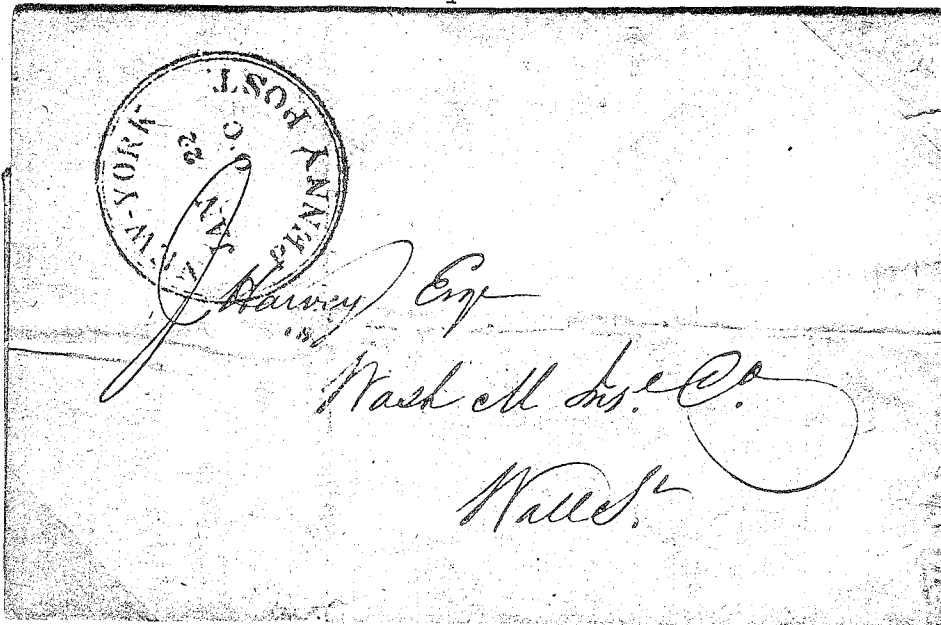 NEW-YORK PENNY POST.
JAN
22
J Harvey Esqr
Wash M Insce Co.
Wall St.